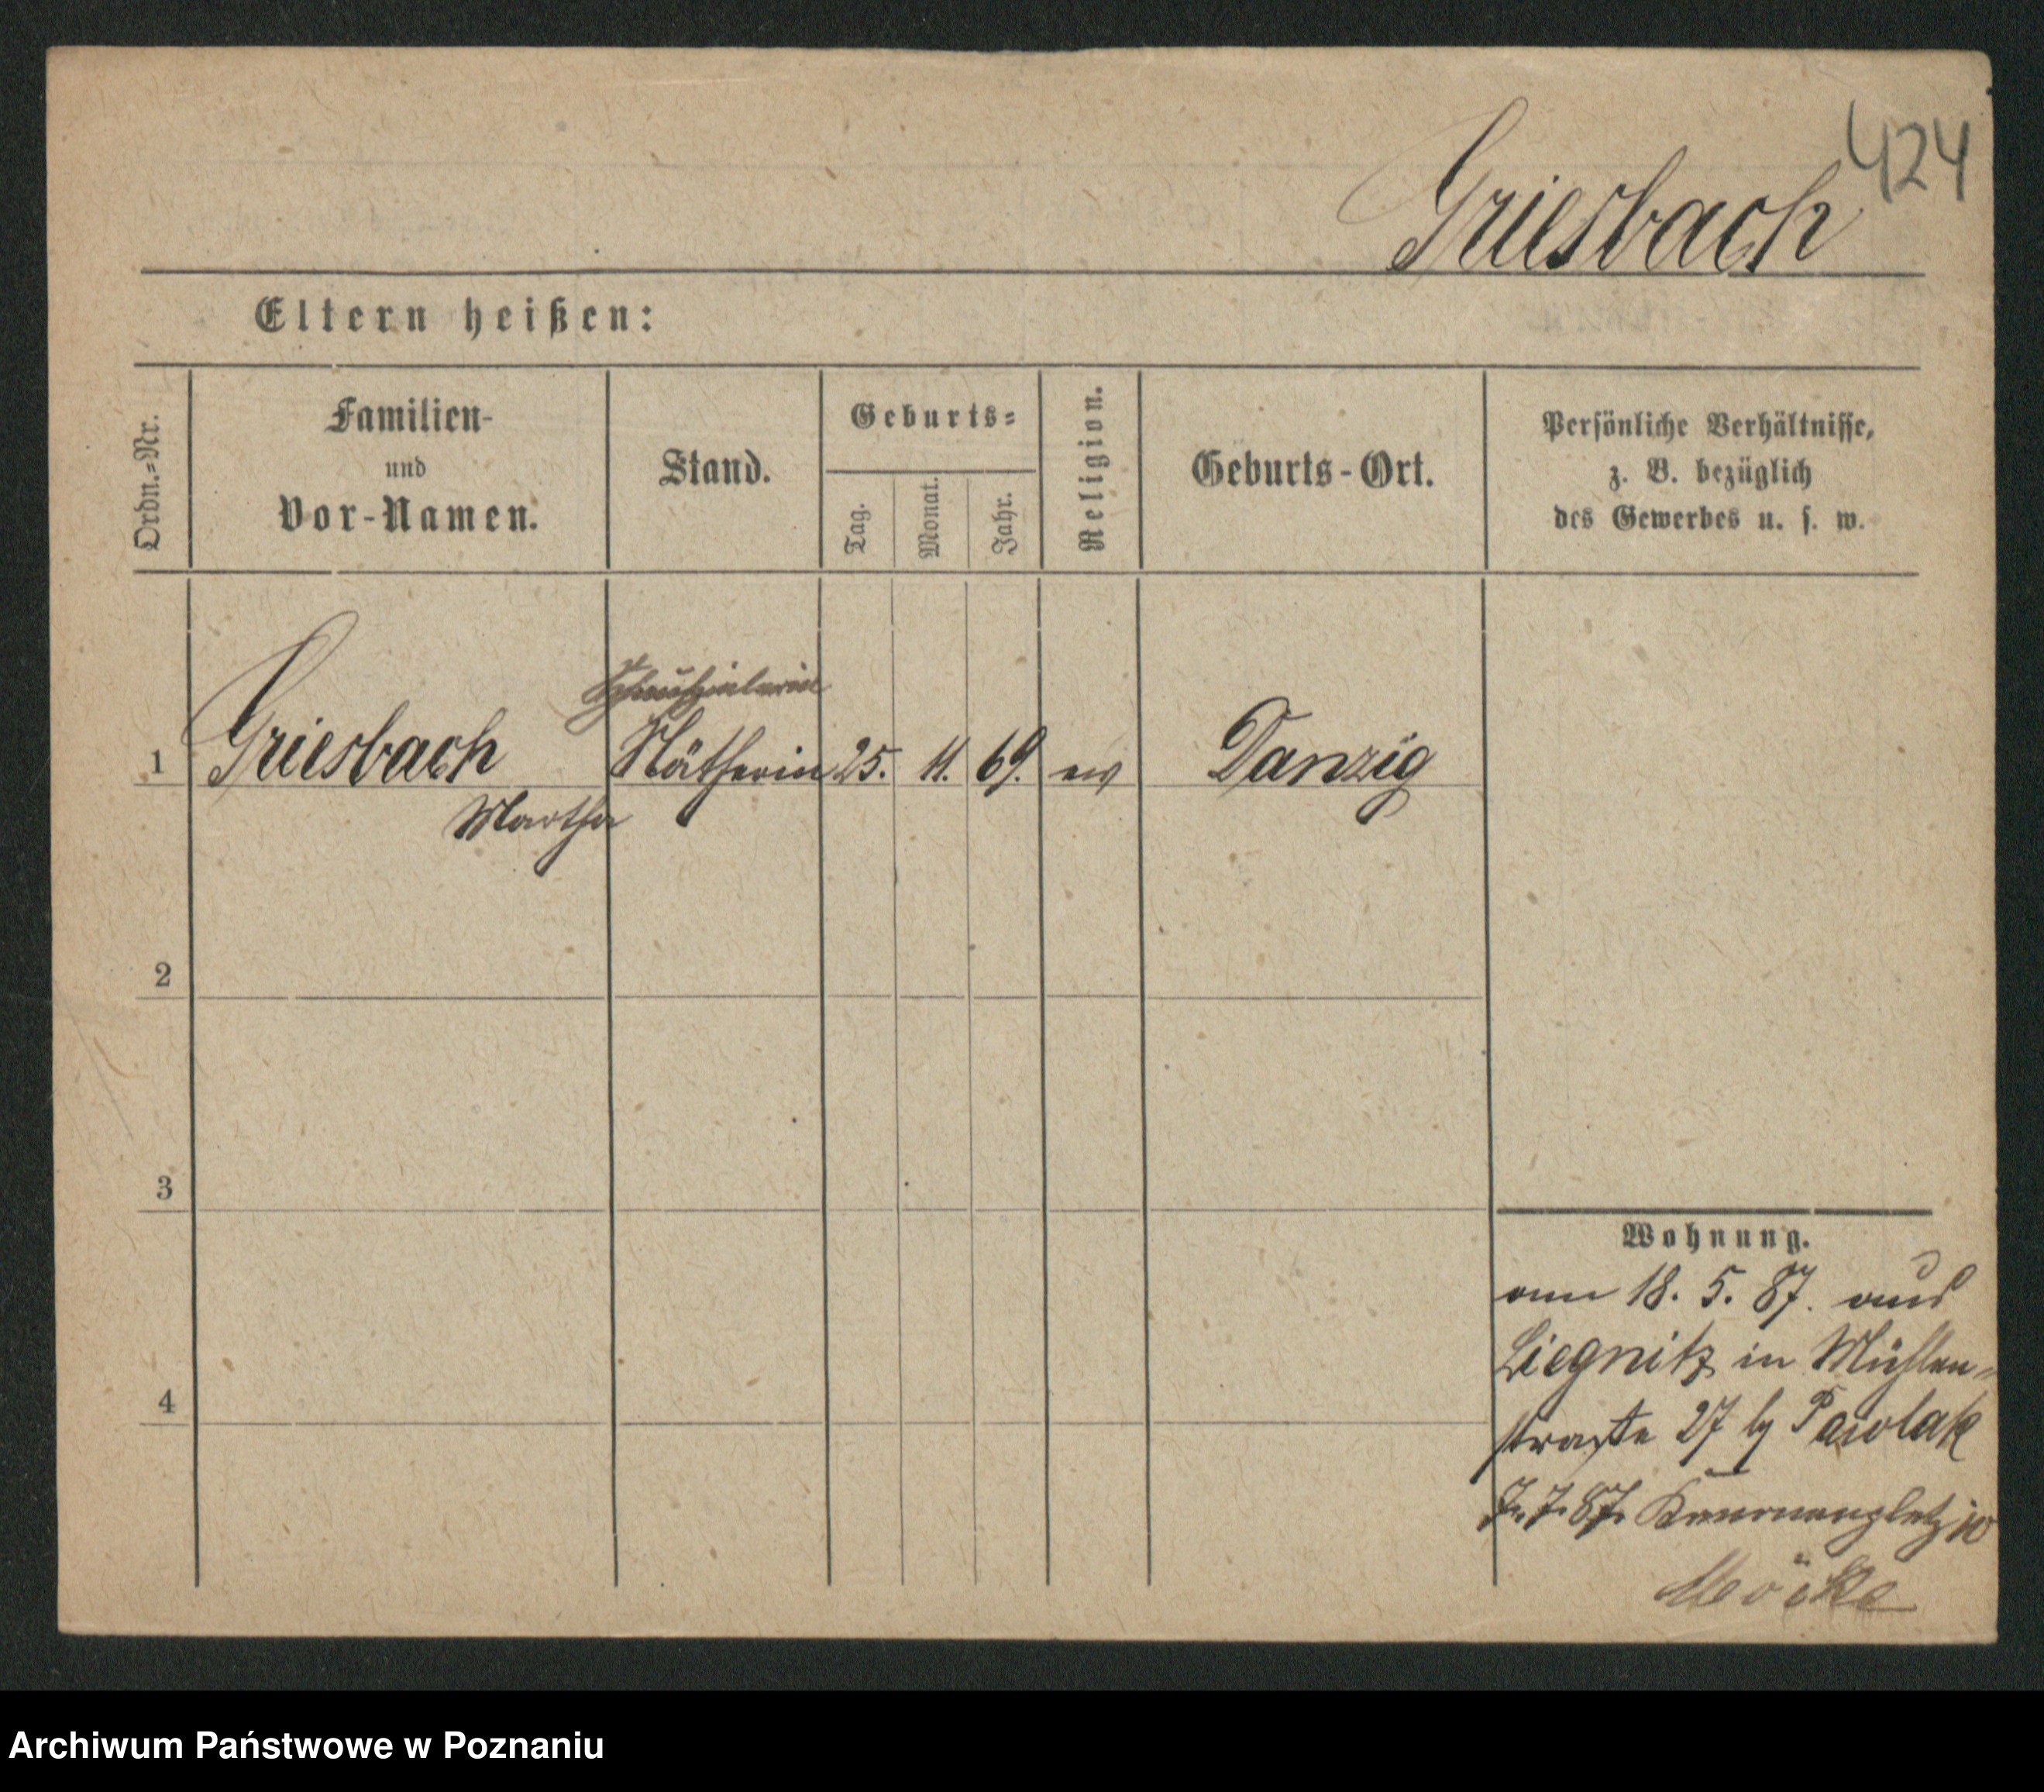 424
Griesbach
Eltern heißen:
Ordn.=Nr.
Familien-
und
Vor-Namen.
Stand.
Geburts=
Tag.
Monat.
Jahr.
Religion.
Geburts-Ort.
Persönliche Verhältnisse,
z. B. bezüglich
des Gewerbes u. s. w.
Schauspielerin
1 Griesbach Nätherin 25. 11. 69. ev Danzig
Martha
2
3
4
Wohnung.
am 18. 5. 87. aus
Liegnitz in Mühlen=
straße 27 by Pawlak
7. 7. 87. 10